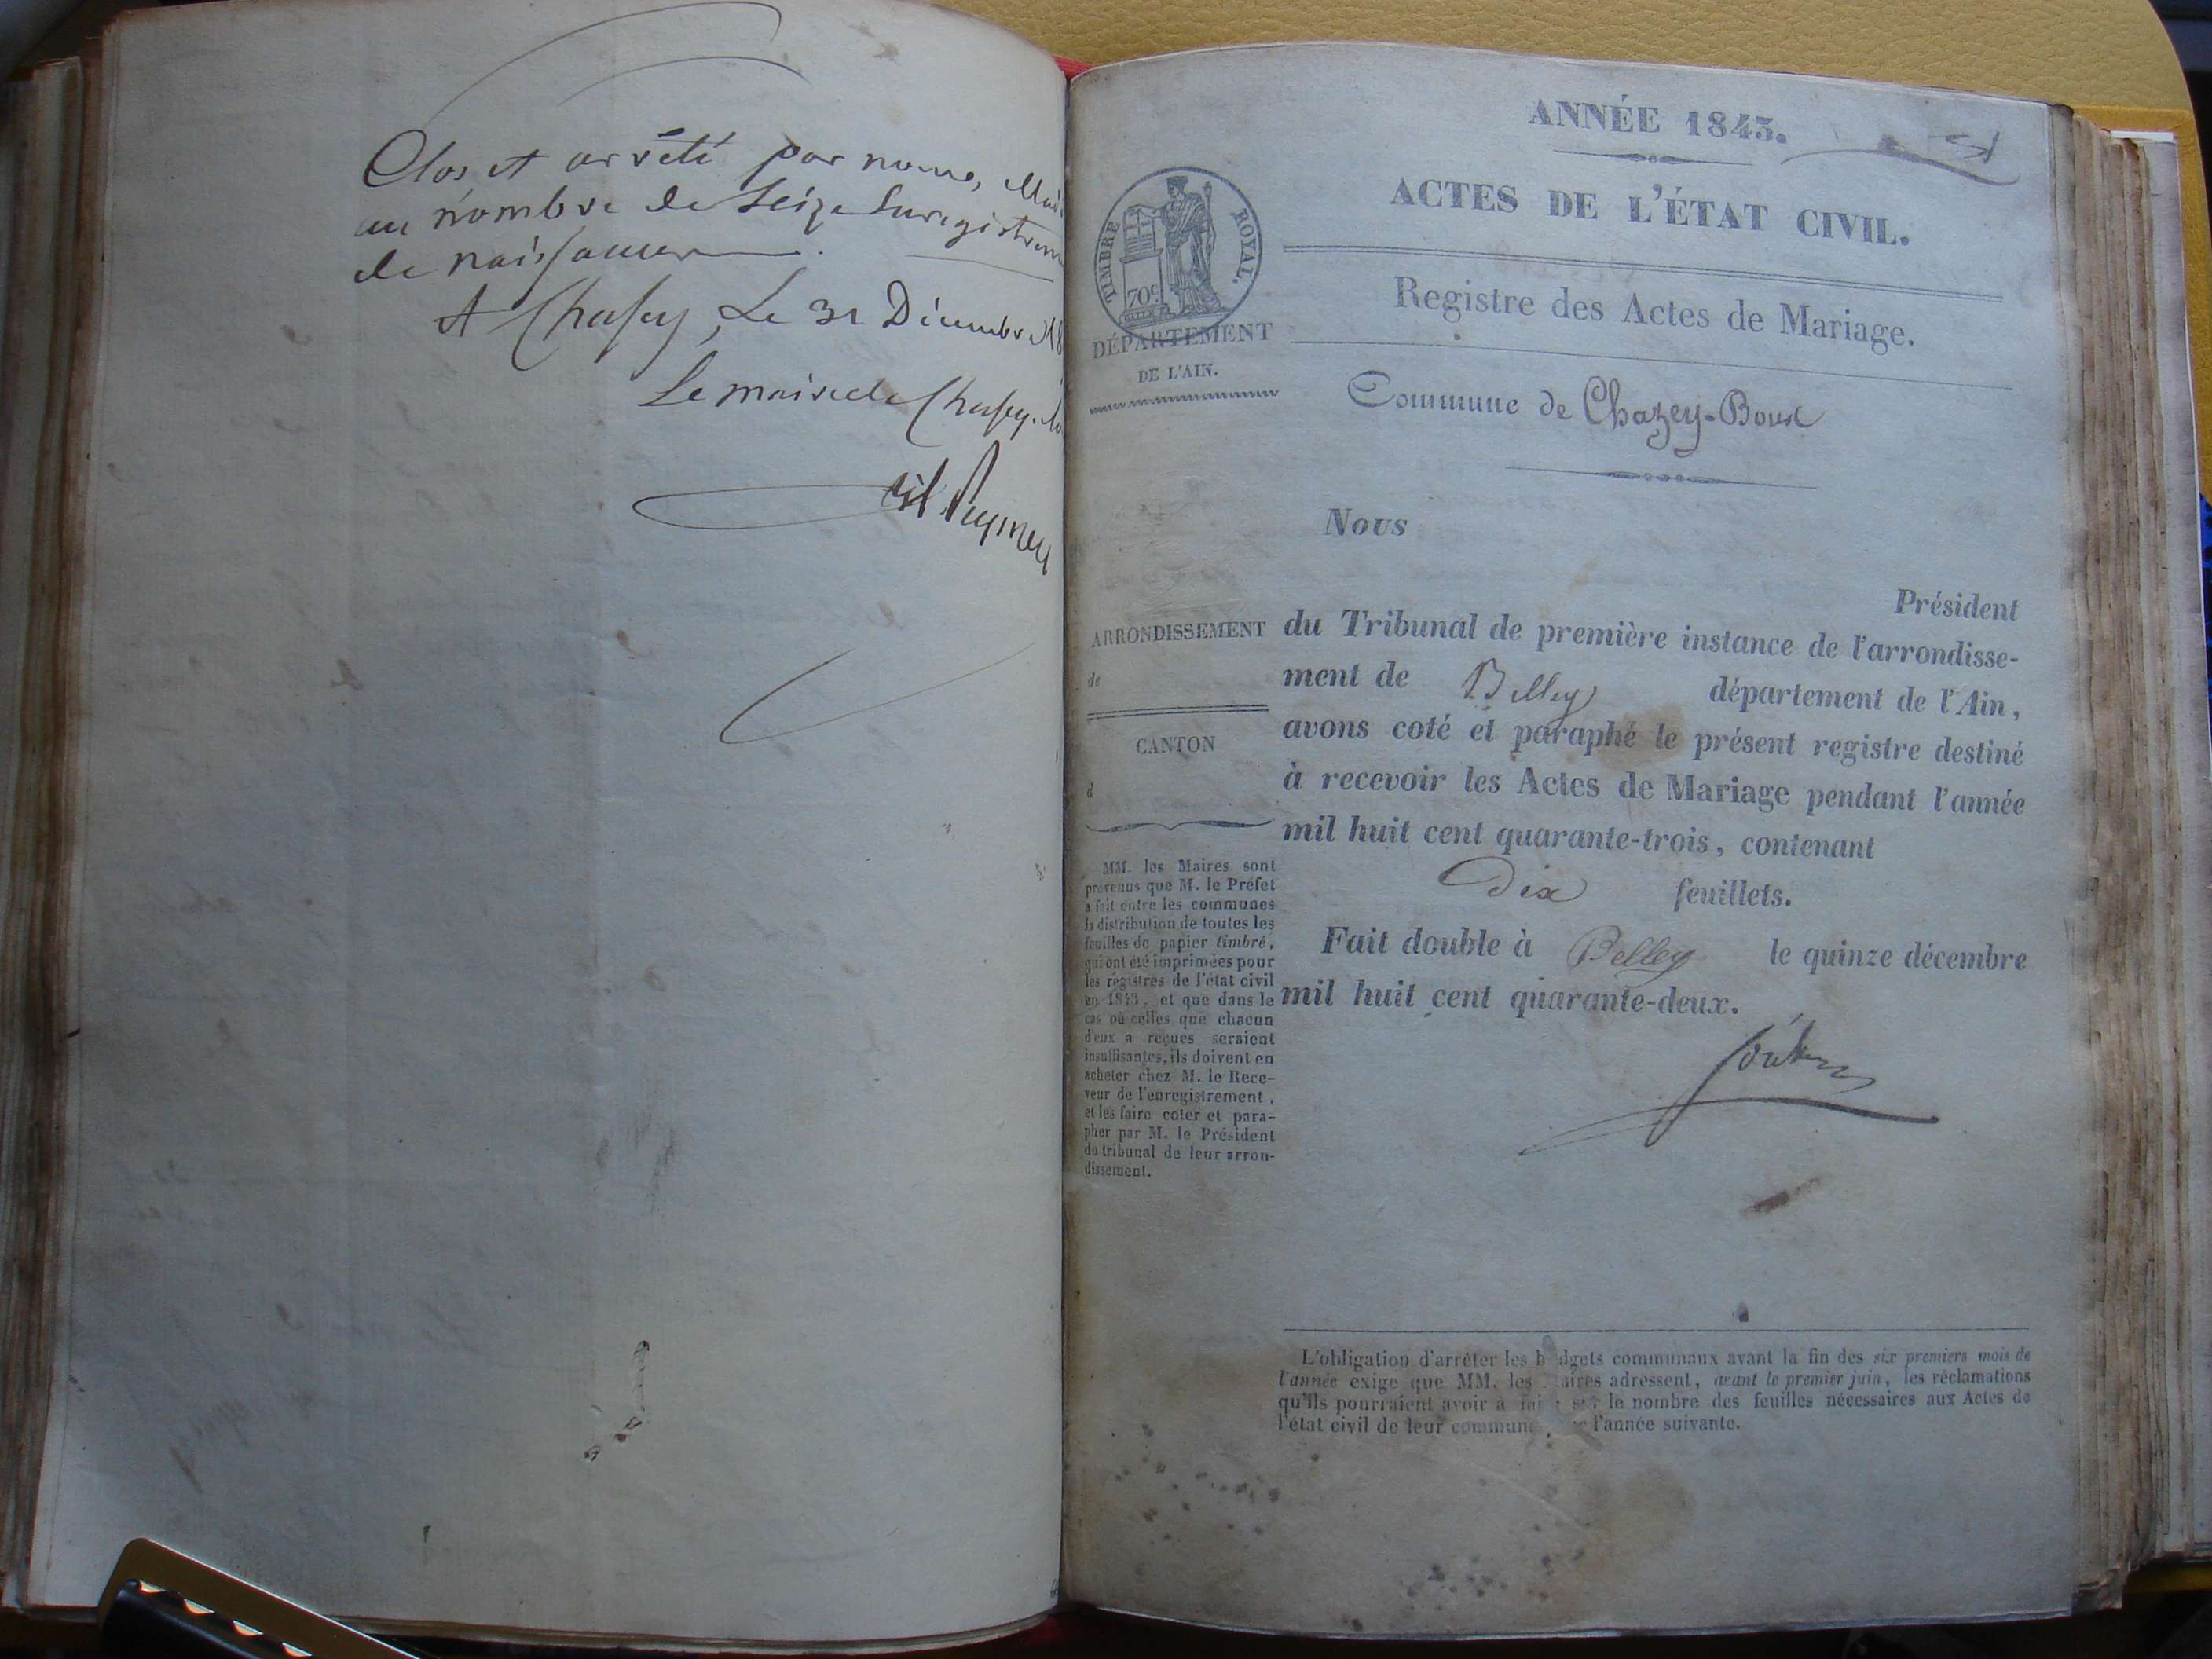 Clos et arrêté par nous,
au nombre de Seize Enregistrem
de naissance
A Chasey, Le 31 Décembre 18
Le maire de Chasey
ANNÉE 1843.
51
ACTES DE L'ÉTAT CIVIL.
TIMBRE ROYAL.
70c
Registre des Actes de Mariage.
DÉPARTEMENT
DE L'AIN.
Commune de Chazey-Bons
Nous
Président
ARRONDISSEMENT
de
CANTON
d
du Tribunal de première instance de l'arrondisse-
ment de Belley département de l'Ain,
avons coté et paraphé le présent registre destiné
à recevoir les Actes de Mariage pendant l'année
mil huit cent quarante-trois, contenant
Dix feuillets.
Fait double à Belley le quinze décembre
mil huit cent quarante-deux.
MM. les Maires sont
prévenus que M. le Préfet
a fait entre les communes
la distribution de toutes les
feuilles de papier timbré,
qui ont été imprimées pour
les registres de l'état civil
en 1843, et que dans le
cas où celles que chacun
d'eux a reçues seraient
insuffisantes, ils doivent en
acheter chez M. le Rece-
veur de l'enregistrement,
et les faire coter et para-
pher par M. le Président
du tribunal de leur arron-
dissement.
L'obligation d'arrêter les b dgets communaux avant la fin des six premiers mois de
l'année exige que MM. les aires adressent, avant le premier juin, les réclamations
qu'ils pourraient avoir à fai sur le nombre des feuilles nécessaires aux Actes de
l'état civil de leur commun l'année suivante.